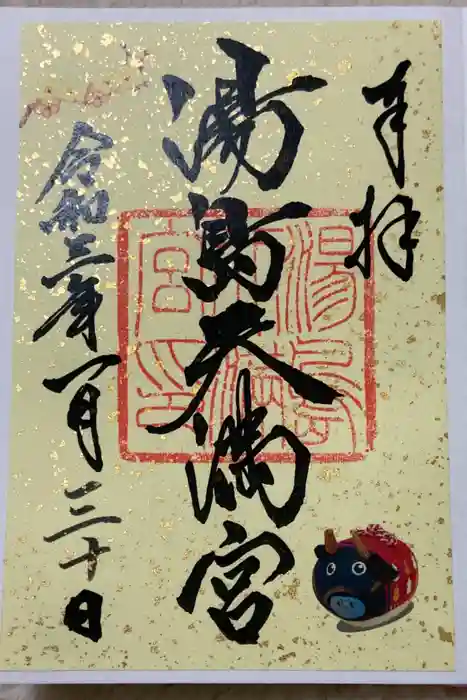 奉拝
湯島天満宮
湯島天満宮印
令和三年一月三十日